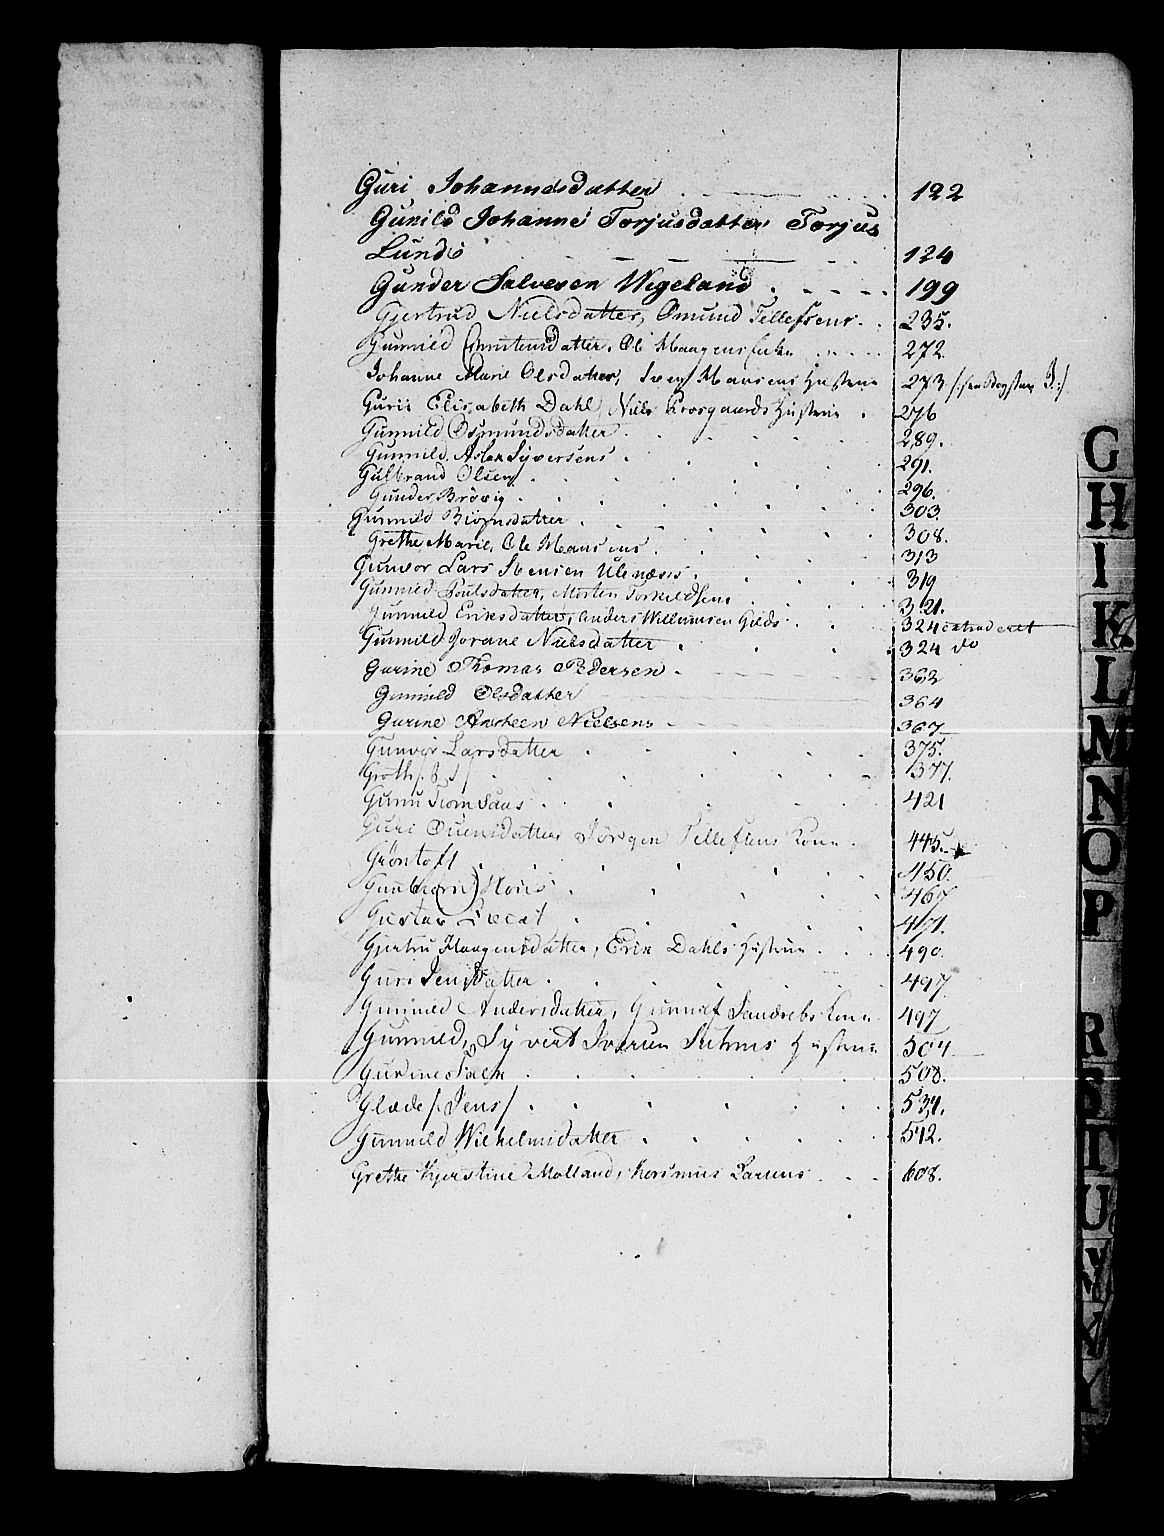 Guri Johannesdatter 122
Gunild Johanne Torjusdatter Torjus
Lunds 124
Gunder Salvesen Wigeland 199
Gjertrud Nielsdatter, Omund Tellefsens 235.
Gunnild datter, Ole Haagens Enke 272.
Johanne Marie Olsdatter, Hansens Hustrue 273 Bogstav J:/
Gurii Elisabeth Dahl, Niels Hustrue 276
Gunnild Osmundsdatter 289.
Gunnild, Aslak Syversens 291.
Gulbrand Olsen 296.
Gunder Brövig 303
Gunnild Biörnsdatter 308.
Grethe Marie, Ole Hansens 313
Gunvor Lars Ulenæss 319
Gunnild Poulsdatter, Morten Torkildsens 321.
Gunnild Eriksdatter, Anders Willumsen Gilds 324 extraderet
Gunnild Jorane Nielsdatter 324 do
Gurine Thomas Pedersen 362
Gunnild Olsdatter 364
Gurine Ansteen Nielsens 367
Gunvor Larsdatter 375.
Groth 377.
Guru 421
Guri datter Jörgen Tellefsens Kone 445.
Gröntoft 450.
467
Gustav 471.
Gjertru Haagensdatter, Erik Dahls Hustrue 490.
Guri Jensdatter 497
Gunnild Andersdatter, Sandrebs Kone 497
Gunnild, Syvert Hustrue 504
Gurine Falk 508.
Glæde /: Jens / 534.
Gunnild Wilhelmsdatter 542.
Grethe Kjerstine Molland, Rasmus Larsens 608.
G
H
I
K
L
M
N
O
P
R
S
T
U
V
Y